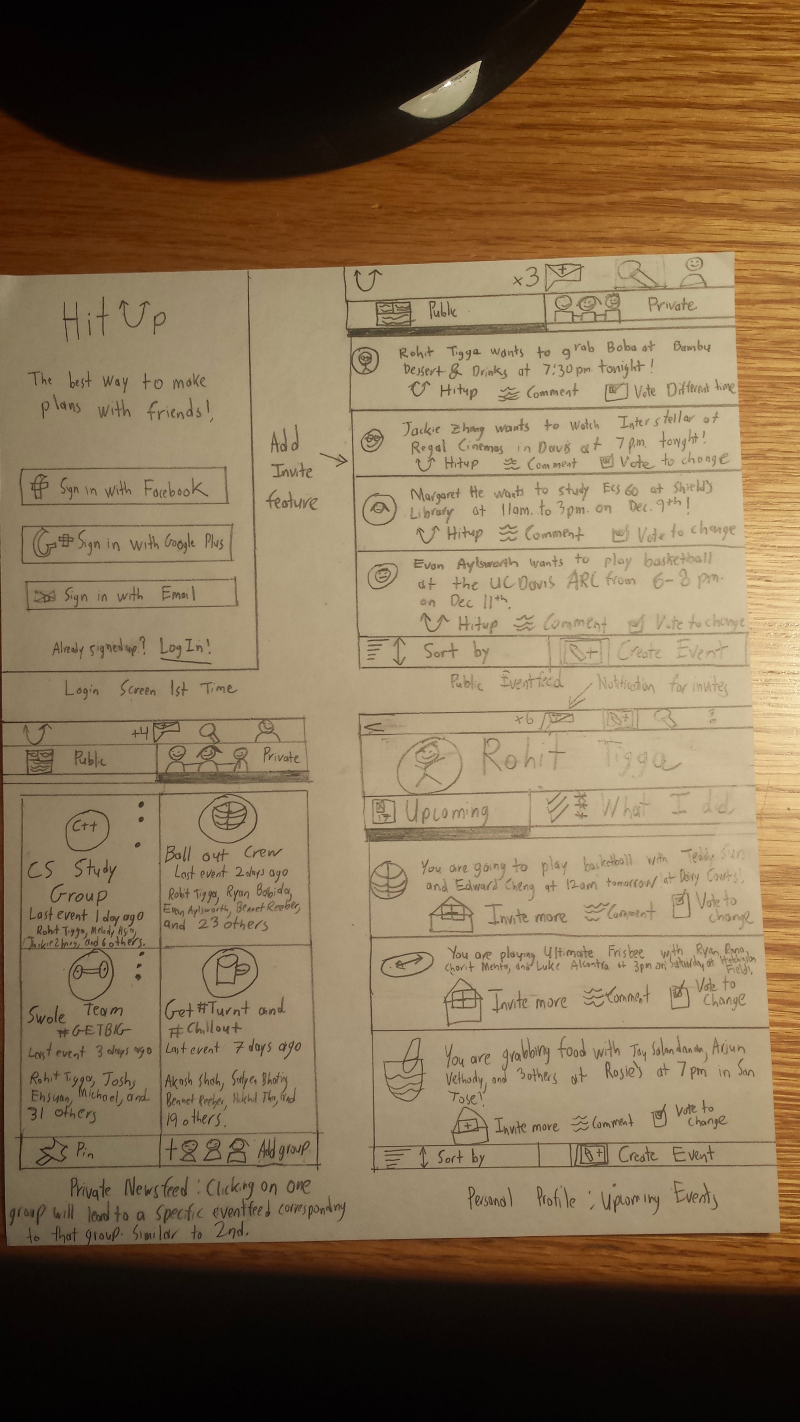 Hit Up
The best way to make
plans with friends!
Sign in with Facebook
G+ Sign in with Google Plus
Sign in with Email
Already signed up? Log In!
Login Screen 1st Time
Add
Invite
feature
x3
Public
Private
Rohit Tigga wants to grab Boba at Bambu
Dessert & Drinks at 7:30pm tonight!
Hitup Comment Vote Different time
Jackie Zhang wants to Watch Interstellar at
Regal Cinemas in Davis at 7pm tonight!
Hitup Comment Vote to change
Margaret He wants to study ECS 60 at Shields
Library at 11am. to 3pm. on Dec. 9th!
Hitup Comment Vote to change
Evan Aylsworth wants to play basketball
at the UC Davis ARC from 6-8 pm.
on Dec 11th.
Hitup Comment Vote to change
Sort by
Create Event
Public Eventfeed
Notification for invites
+4
Public
Private
C++
CS Study
Group
Last event 1 day ago
Rohit Tigga, Melody,
and 6 others.
Ball out Crew
Last event 2 days ago
Rohit Tigga, Ryan
Evan Aylsworth, Bennet Reeber,
and 23 others
Swole Team
#GETBIG
Last event 3 days ago
Rohit Tigga, Josh,
Ehsuan, Michael, and
31 others
Get #Turnt and
#Chillout
Last event 7 days ago
Akash Shah,
Bennet Reeber, and
19 others.
Pin
+ Add group
Private Newsfeed: Clicking on one
group will lead to a specific eventfeed corresponding
to that group. Similar to 2nd.
<
x6
Rohit Tigga
Upcoming
What I did
You are going to play basketball with Teddy Sun
and Edward Cheng at 12am tomorrow at Dairy Courts!
Invite more Comment Vote to
change
You are playing Ultimate Frisbee with Ryan
Charit Mehta, and Luke Alcantra at 3pm on Saturday at Hutchington
Fields.
Invite more Comment Vote to
Change
You are grabbing food with Jay Arjun
and 3 others at Rosie's at 7 pm in San
Jose!
Invite more Comment Vote to
change
Sort by
Create Event
Personal Profile: Upcoming Events